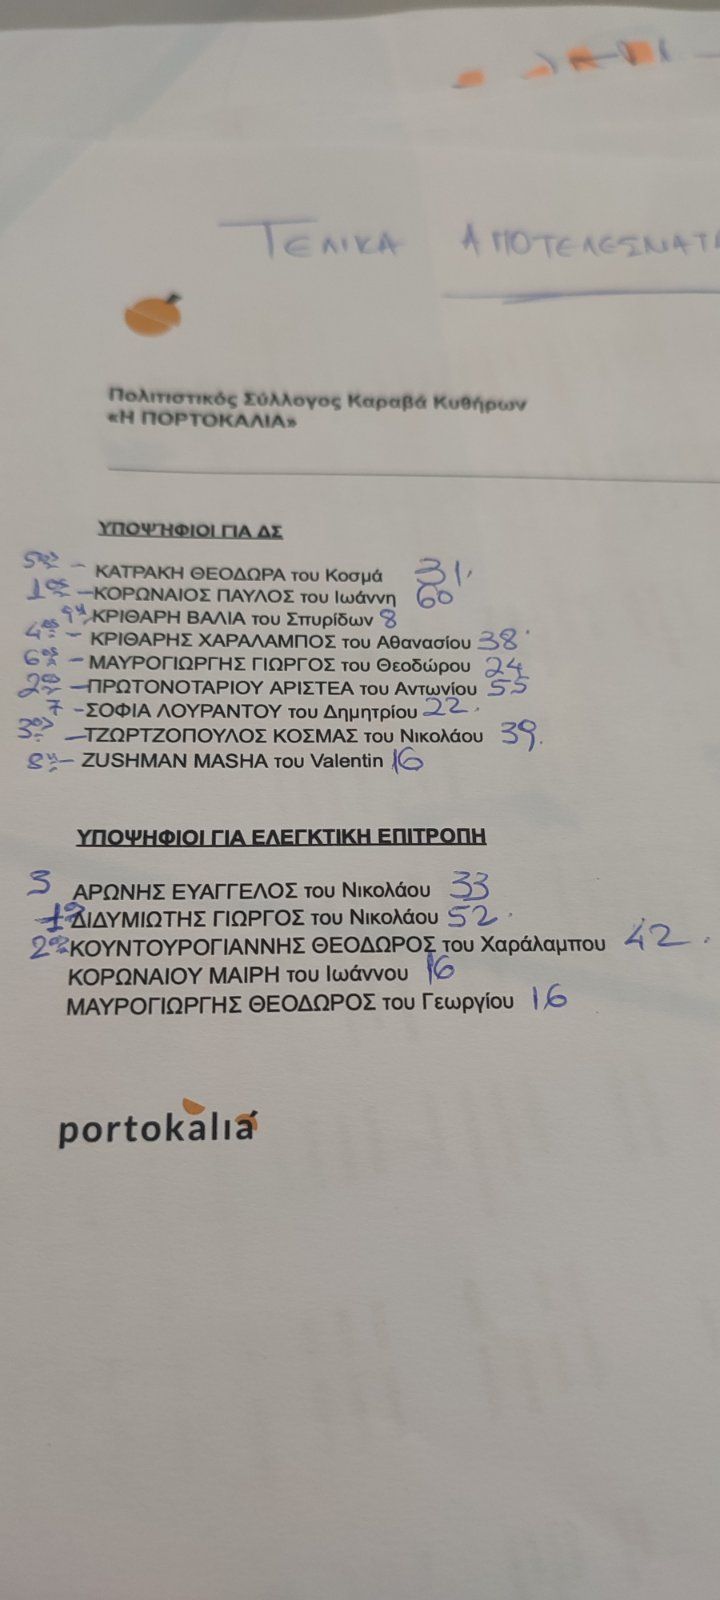 ΤΕΛΙΚΑ ΑΠΟΤΕΛΕΣΜΑΤΑ
Πολιτιστικός Σύλλογος Καραβά Κυθήρων
«Η ΠΟΡΤΟΚΑΛΙΑ»
ΥΠΟΨΗΦΙΟΙ ΓΙΑ ΔΣ
5ος - ΚΑΤΡΑΚΗ ΘΕΟΔΩΡΑ του Κοσμά 31.
1ος - ΚΟΡΩΝΑΙΟΣ ΠΑΥΛΟΣ του Ιωάννη 60
9η ΚΡΙΘΑΡΗ ΒΑΛΙΑ του Σπυρίδων 8
4ος - ΚΡΙΘΑΡΗΣ ΧΑΡΑΛΑΜΠΟΣ του Αθανασίου 38
6ος - ΜΑΥΡΟΓΙΩΡΓΗΣ ΓΙΩΡΓΟΣ του Θεοδώρου 24
2ος - ΠΡΩΤΟΝΟΤΑΡΙΟΥ ΑΡΙΣΤΕΑ του Αντωνίου 55
7 - ΣΟΦΙΑ ΛΟΥΡΑΝΤΟΥ του Δημητρίου 22.
3ος - ΤΖΩΡΤΖΟΠΟΥΛΟΣ ΚΟΣΜΑΣ του Νικολάου 39.
8η - ZUSHMAN MASHA του Valentin 16
ΥΠΟΨΗΦΙΟΙ ΓΙΑ ΕΛΕΓΚΤΙΚΗ ΕΠΙΤΡΟΠΗ
3 ΑΡΩΝΗΣ ΕΥΑΓΓΕΛΟΣ του Νικολάου 33
1ος ΔΙΔΥΜΙΩΤΗΣ ΓΙΩΡΓΟΣ του Νικολάου 52.
2ος ΚΟΥΝΤΟΥΡΟΓΙΑΝΝΗΣ ΘΕΟΔΩΡΟΣ του Χαράλαμπου 42.
ΚΟΡΩΝΑΙΟΥ ΜΑΙΡΗ του Ιωάννου 16
ΜΑΥΡΟΓΙΩΡΓΗΣ ΘΕΟΔΩΡΟΣ του Γεωργίου 16
portokaliά